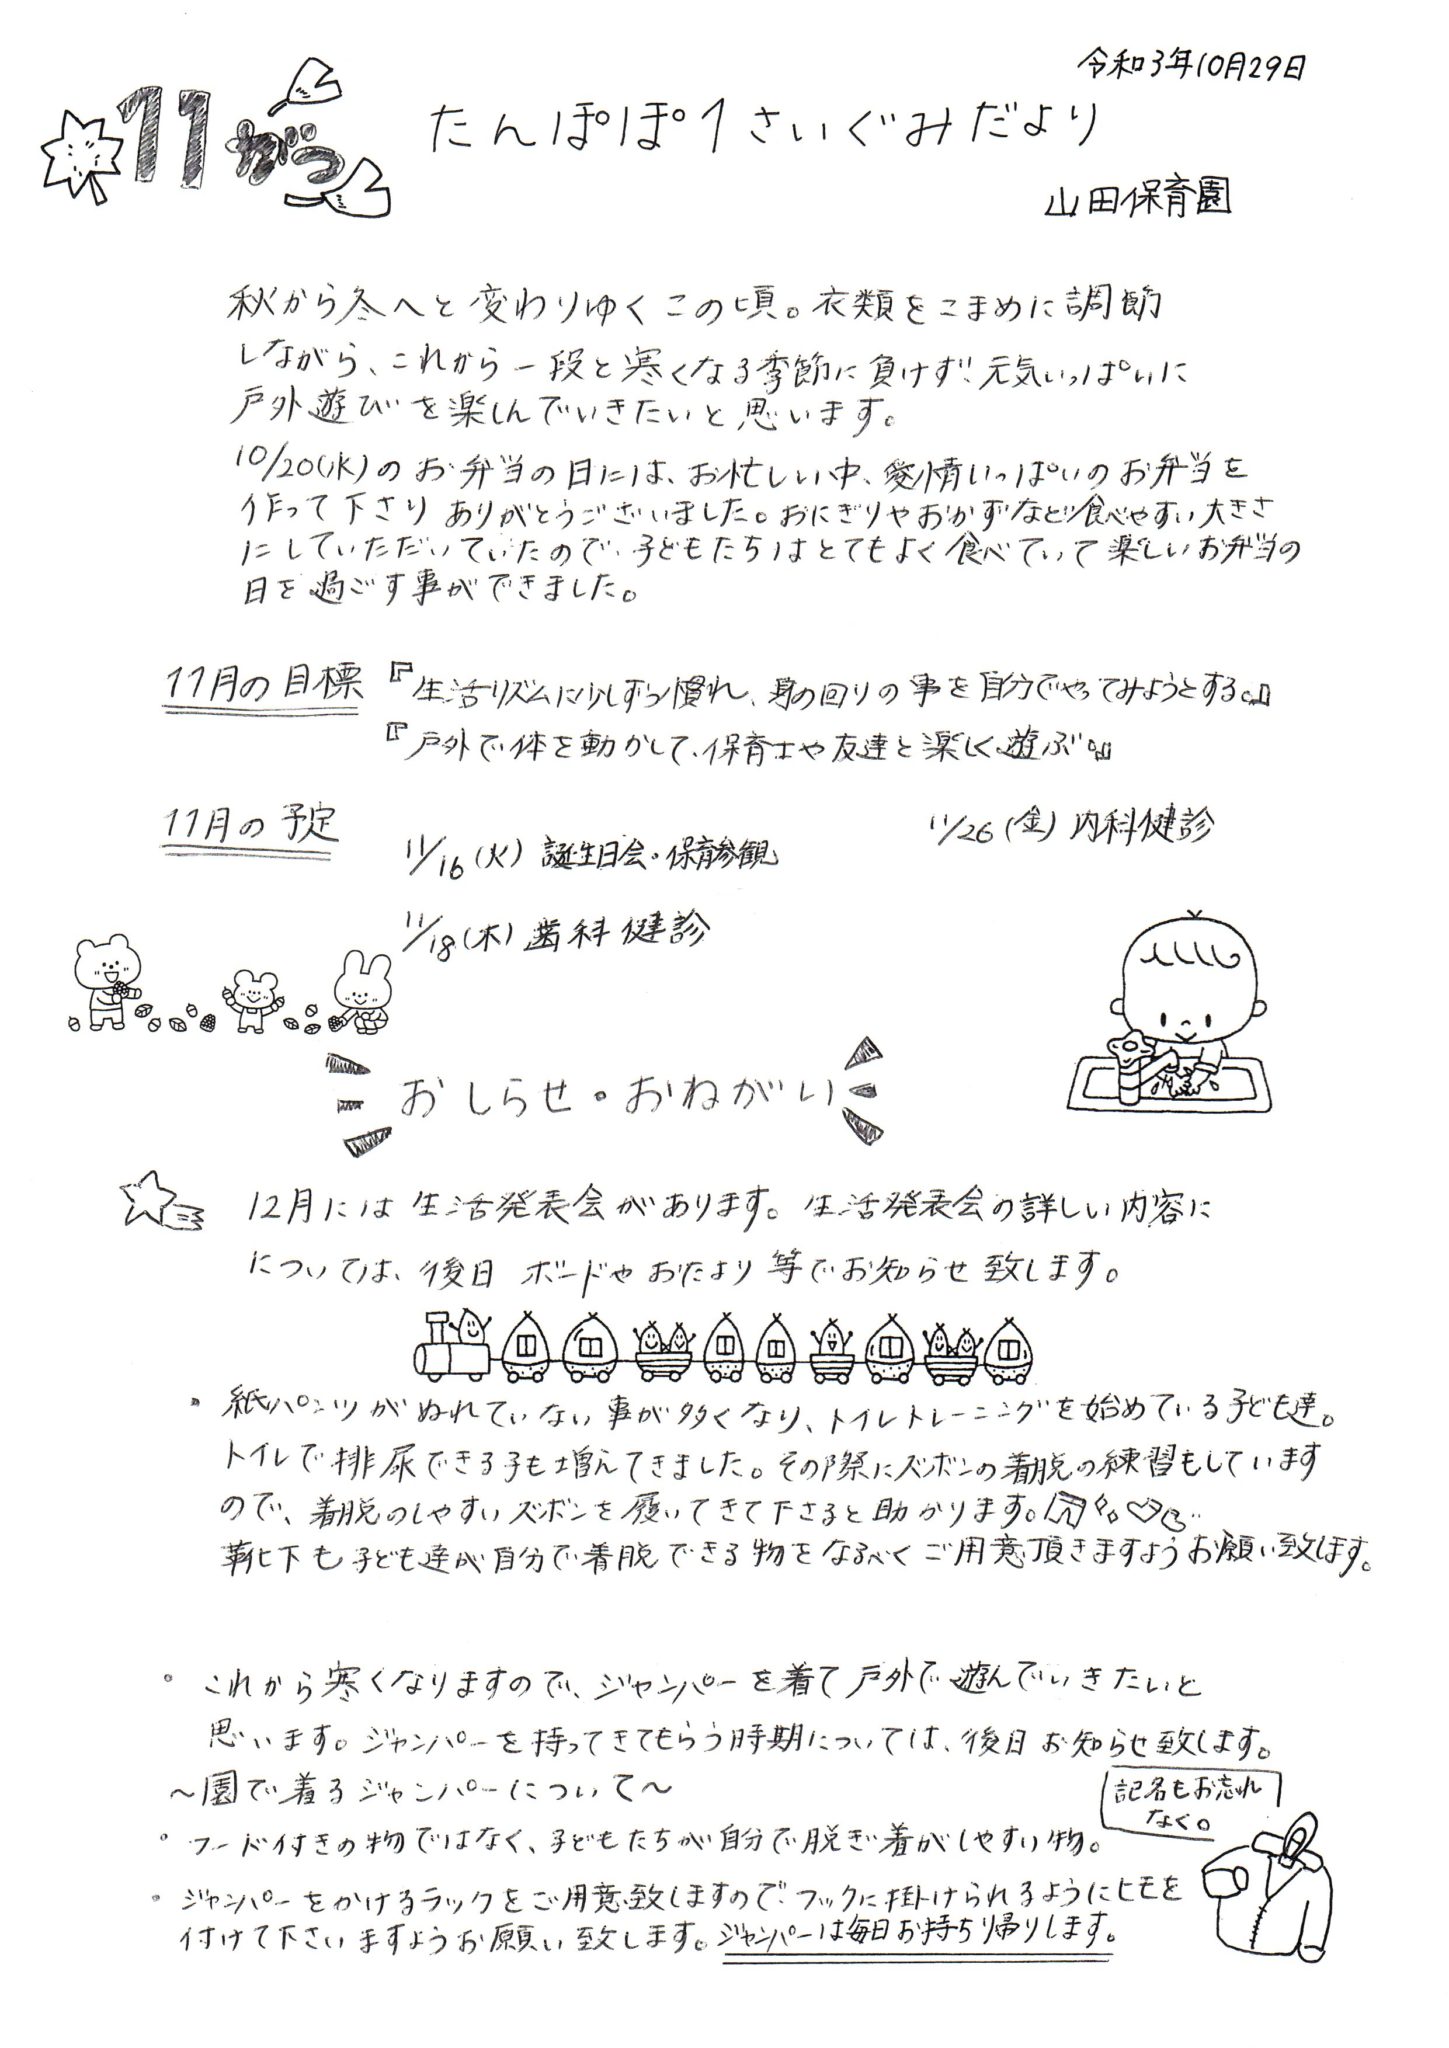 令和3年10月29日
11がつ
たんぽぽ1さいぐみだより
山田保育園
秋から冬へと変わりゆくこの頃。衣類をこまめに調節
しながら、これから一段と寒くなる季節に負けず、元気いっぱいに
戸外遊びを楽しんでいきたいと思います。
10/20(水)のお弁当の日には、お忙しい中、愛情いっぱいのお弁当を
作って下さりありがとうございました。おにぎりやおかずなど食べやすい大きさ
にしていただいていたので、子どもたちはとてもよく食べていて楽しいお弁当の
日を過ごす事ができました。
11月の目標 『生活リズムに少しずつ慣れ、身の回りの事を自分でやってみようとする。』
『戸外で体を動かして、保育士や友達と楽しく遊ぶ。』
11月の予定
11/16(火) 誕生日会・保育参観
11/26(金) 内科健診
11/18(木) 歯科健診
おしらせ・おねがい
12月には生活発表会があります。生活発表会の詳しい内容に
については、後日ボードやおたより等でお知らせ致します。
・紙パンツがぬれていない事が多くなり、トイレトレーニングを始めている子ども達。
トイレで排尿できる子も増えてきました。その際にズボンの着脱の練習もしています
ので、着脱のしやすいズボンを履いてきて下さると助かります。
靴下も子ども達が自分で着脱できる物をなるべくご用意頂きますようお願い致します。
・これから寒くなりますので、ジャンパーを着て戸外で遊んでいきたいと
思います。ジャンパーを持ってきてもらう時期については、後日お知らせ致します。
～園で着るジャンパーについて～
記名もお忘れ
なく。
・フード付きの物ではなく、子どもたちが自分で脱ぎ着がしやすい物。
・ジャンパーをかけるラックをご用意致しますので、フックに掛けられるようにヒモを
付けて下さいますようお願い致します。ジャンパーは毎日お持ち帰りします。